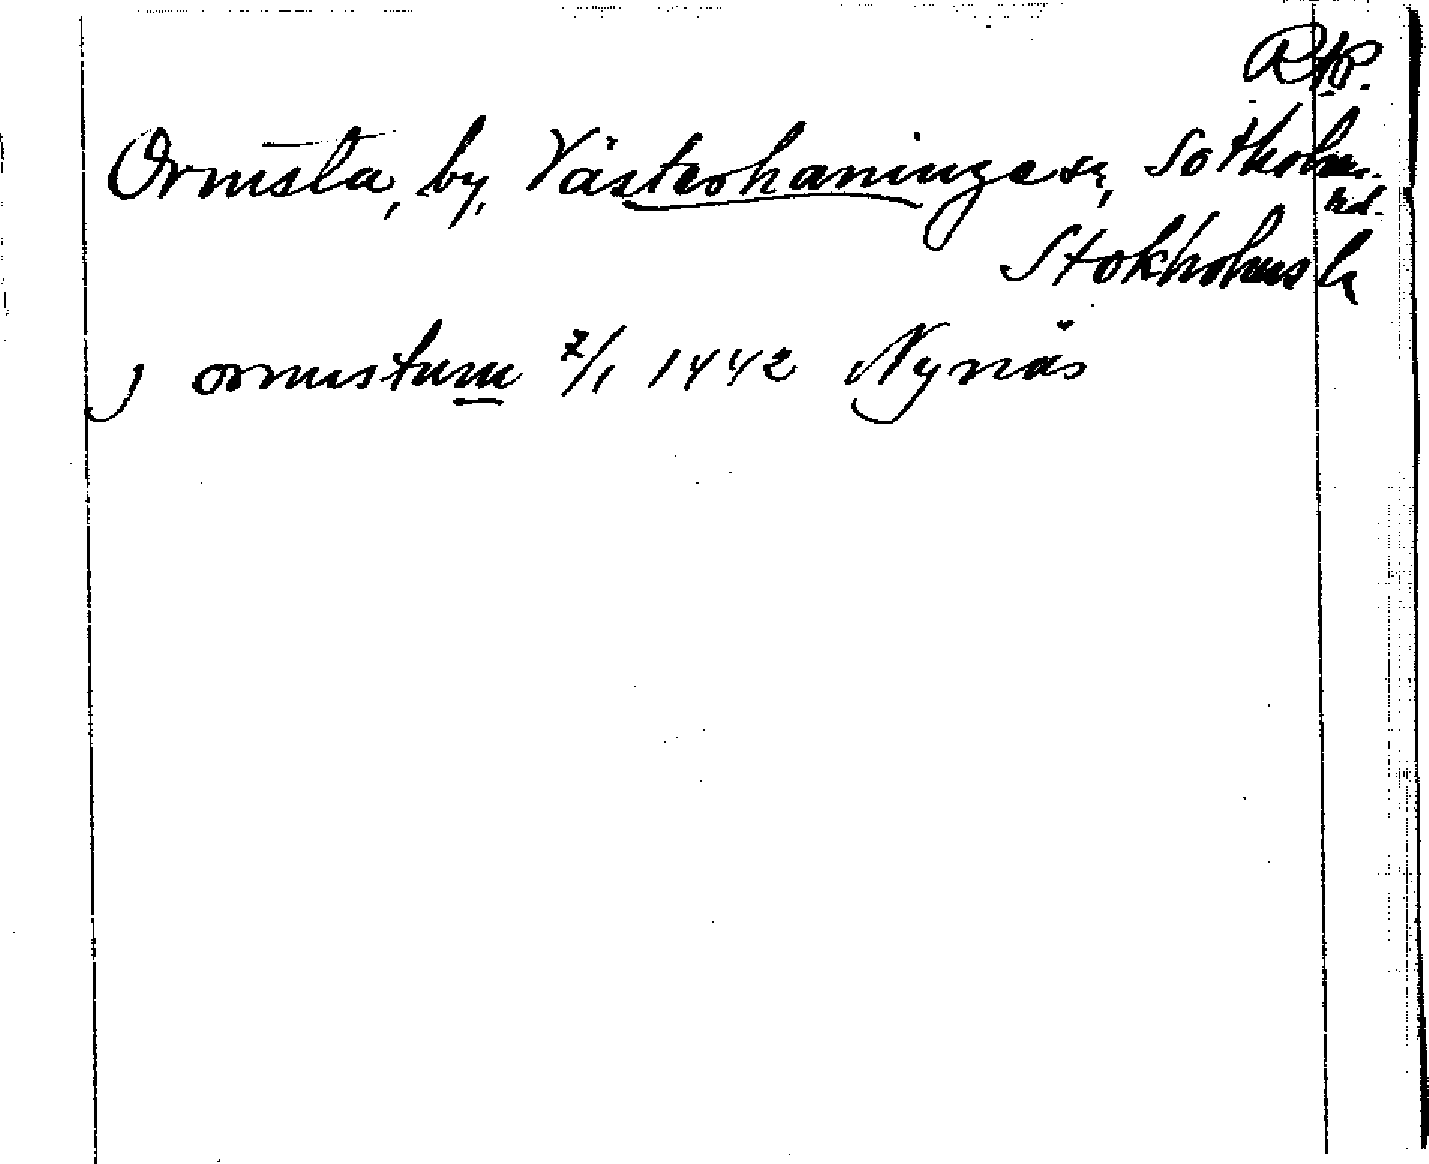 Rkp.
Ormsta, by, Västerhaninge sn, Sotholms
hd.
Stockholms l.
j ormistum 7/1 1442 Nynäs